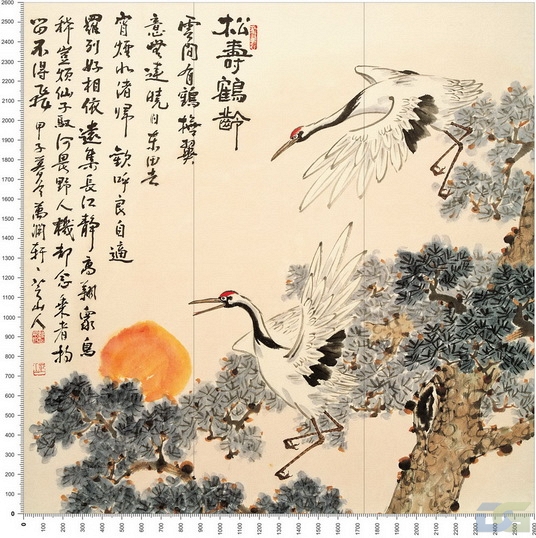 松壽鶴齡
雲間有鶴揚翼
意燮遠曉日東出去
宵煙水渚歸 歡呼良自適
羅列好相依 遠集長江靜 高翔衆鳥
稀 豈煩仙子馭 何畏野人機 却念乘者拘
留不得飛 甲子 萬澗軒
2600
2500
2400
2300
2200
2100
2000
1900
1800
1700
1600
1500
1400
1300
1200
1100
1000
900
800
700
600
500
400
300
200
100
0
0 100 200 300 400 500 600 700 800 900 1000 1100 1200 1300 1400 1500 1600 1700 1800 1900 2000 2100 2200 2300 2400 2500 2600